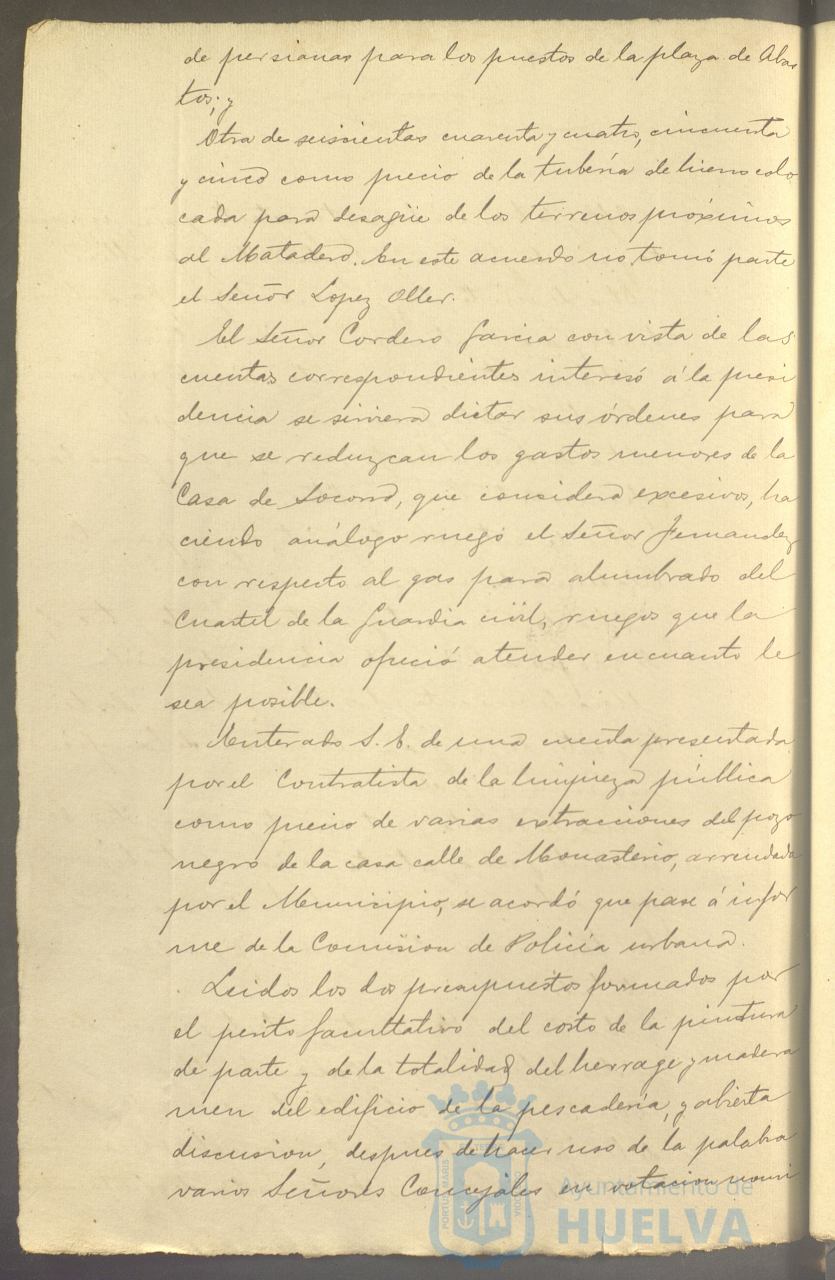 de persianas para los puestos de la plaza de Abas
tos; y
Otra de seiscientas cuarenta y cuatro, cincuenta
y cinco como precio de la tubería de hierro colo
cada para desagüe de los terrenos próximos
al Matadero. En este acuerdo no tomó parte
el Señor Lopez Oller.
El Señor Cordero Garcia con vista de las
cuentas correspondientes interesó á la presi
dencia se sirviera dictar sus órdenes para
que se reduzcan los gastos menores de la
Casa de Socorro, que considera excesivos, ha
ciendo análogo ruego el Señor Fernandez
con respecto al gas para alumbrado del
Cuartel de la Guardia civil, ruegos que la
presidencia ofreció atender en cuanto le
sea posible.
Enterado S. E. de una cuenta presentada
por el Contratista de la limpieza pública
como precio de varias extracciones del pozo
negro de la casa calle de Monasterio, arrendada
por el Municipio, se acordó que pase á infor
me de la Comision de Policía urbana.
Leidos los dos presupuestos formados por
el perito facultativo del costo de la pintura
de parte y de la totalidad del herrage y madera
men del edificio de la pescadería, y abierta
discusion, despues de hacer uso de la palabra
varios Señores Concejales en votacion nomi
Ayuntamiento de
HUELVA